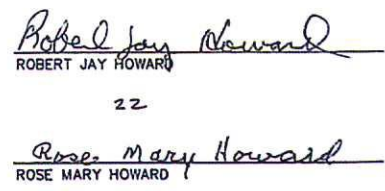 Robert Jay Howard
ROBERT JAY HOWARD
22
Rose Mary Howard
ROSE MARY HOWARD